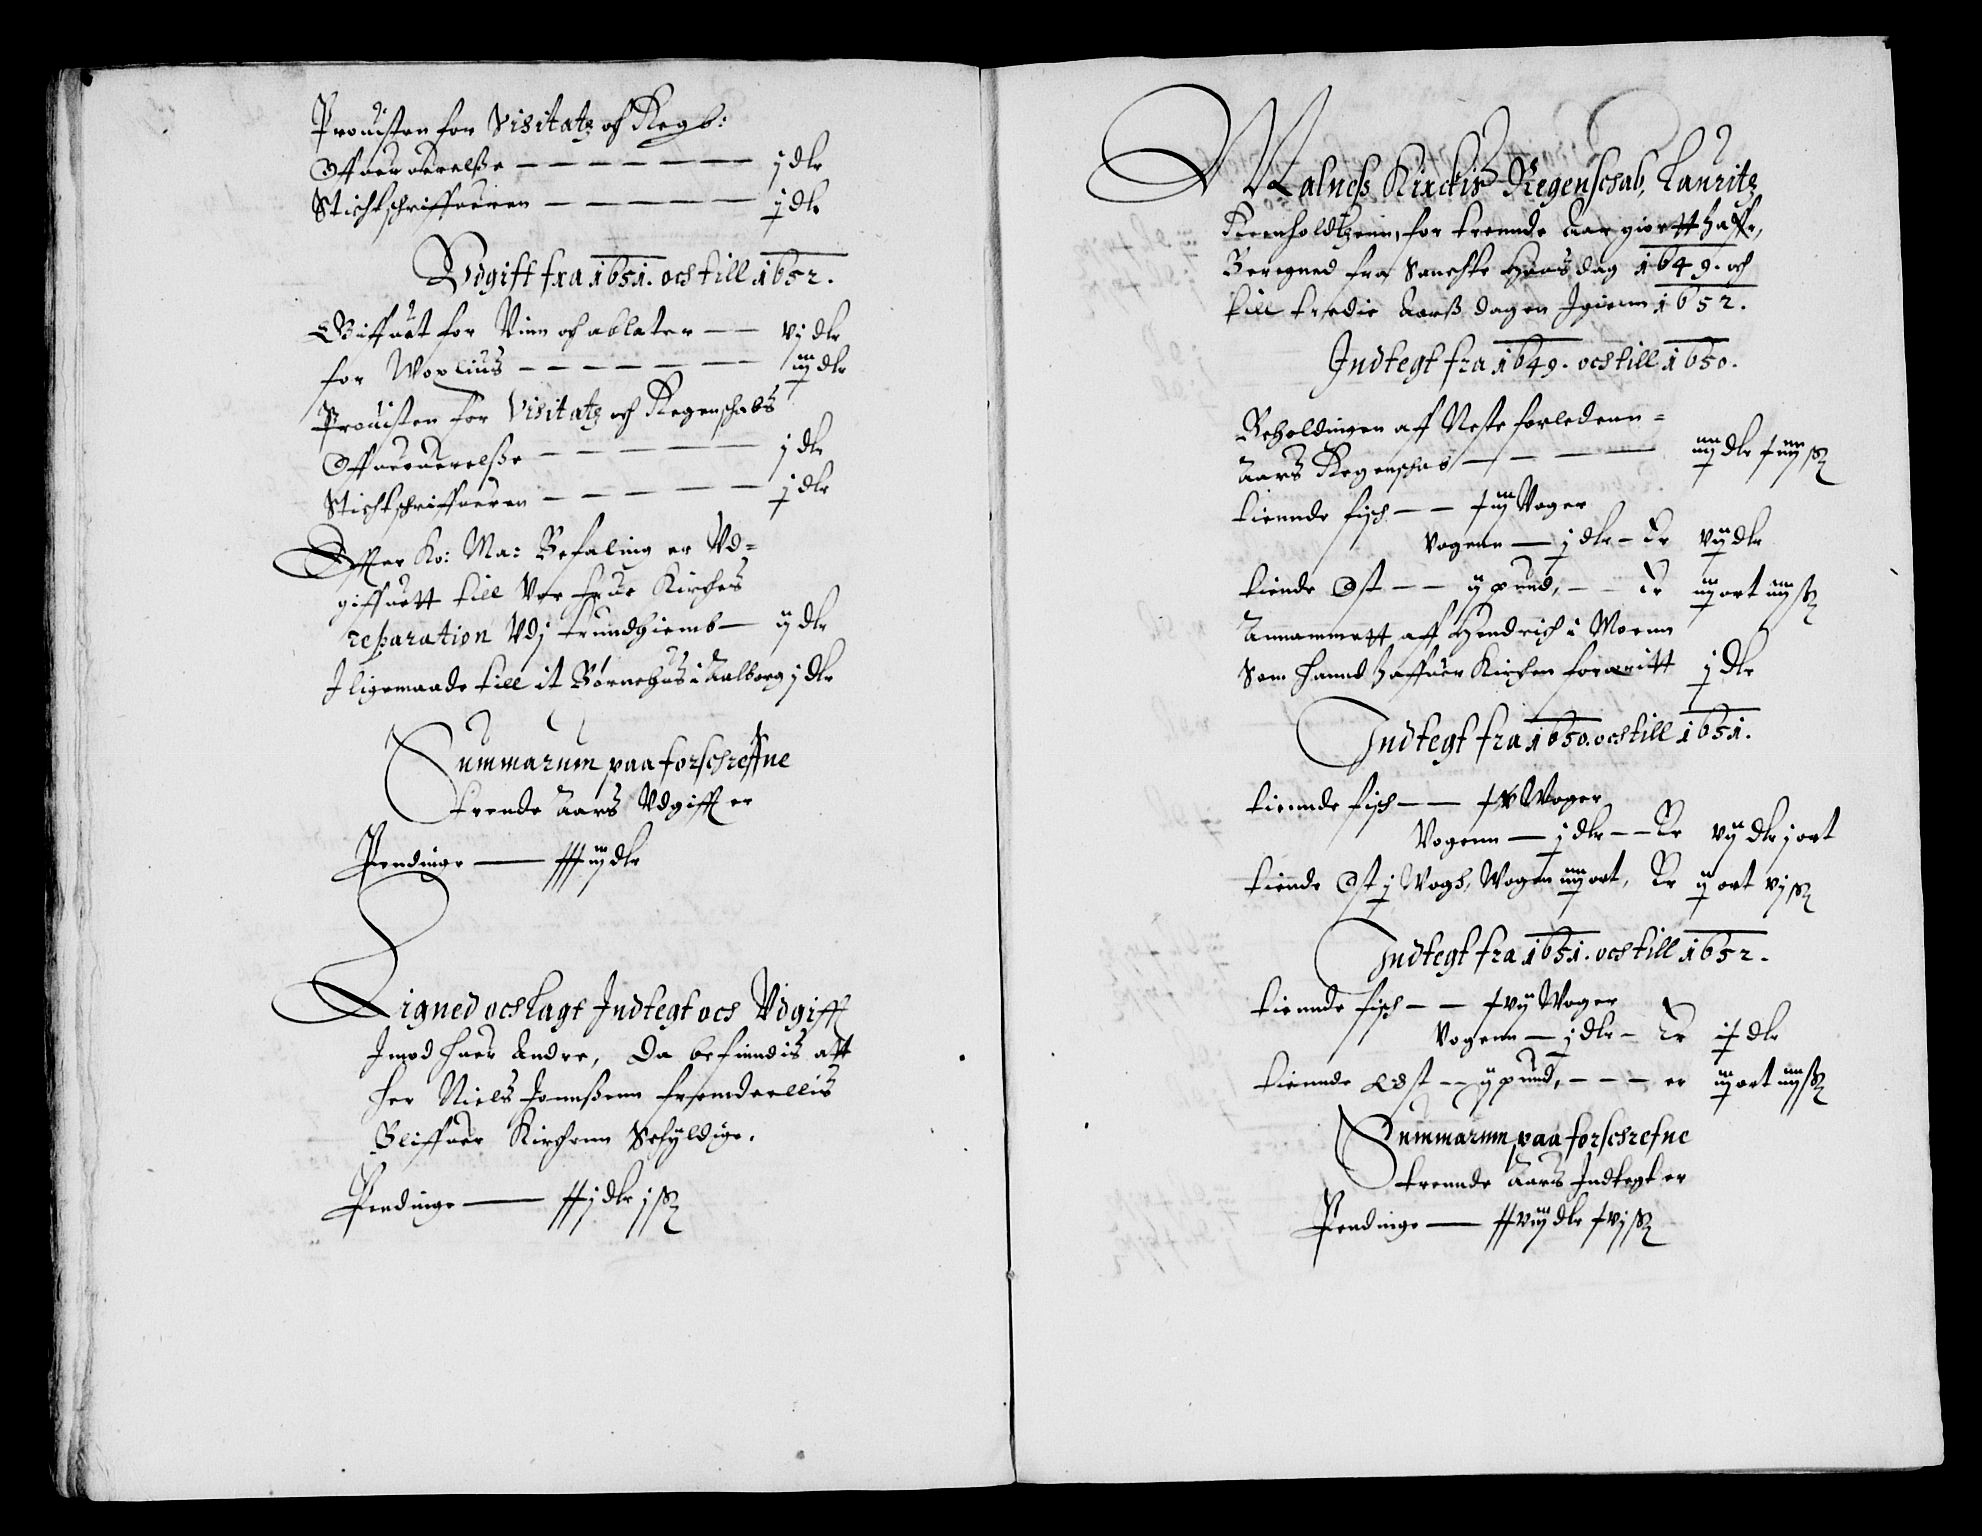 Prouisten for Visitatz och Regb:
Offueruerelße — — — — — — — j dlr
Stichtschriffueren — — — — — — j dlr
Vdgift fra 1651. och till 1652.
Giffuet for Viin och ablater — — vj dlr
for Voxlius — — — — — — — iij dlr
Prouisten for Visitatz och Regenschabs
Offueruerelße — — — — — — j dlr
Stichtschriffueren — — — — — — j dlr
Effter Ko: Ma: Befaling er Vd=
giffuett till Vor frue Kirches
reparation Vdj trundhiemb — ij dlr
J ligemaade till it Börnehus i Aalborg j dlr
Summarum paa forschreffne
trende Aars Vdgifft er
Pendinge — xxxiij dlr
Ligned och lagt Indtegt och Vdgifft
Jmod huer Andre, Da befindis att
her Niels Jonnßenn fremdeellis
Bliffuer Kirchenn Schyldige.
Pendinge — xxj dlr j ß
Walneß Kirckis Regenschab, Lauritz
for trennde Aar giortt haffr,
Beregned fra Sancte Hans dag 1649. och
till tredie Aarß dagen Igienn 1652.
Indtegt fra 1649. och till 1650.
Beholdingen aff Neste forledenn=
Aars Regenschab — — — iiij dlr xiiij ß
tiennde fisch — — xiij Voger
Vogenn — j dlr — Er vij dlr
tiende Ost — — ij pund, — — Er iij ort iiij ß
Annammett aff Hendrich i Moenn
Som hannd haffuer Kirchen foraeritt j dlr
Indtegt fra 1650. och till 1651.
tiennde fisch — — xv Woger
Vogenn — j dlr — — Er vij dlr j ort
tiende Ost j Wogh, Wogen iiij ort, Er ij ort vj ß
Indtegt fra 1651. och till 1652.
tiennde fisch — — xvij Woger
Vogenn — j dlr — Er ix dlr
tiennde Ost — ij pund, — — — er iij ort iiij ß
Summarum paa forschrefne
trennde Aars Indtegt er
Pendinge — xxviij dlr xvj ß